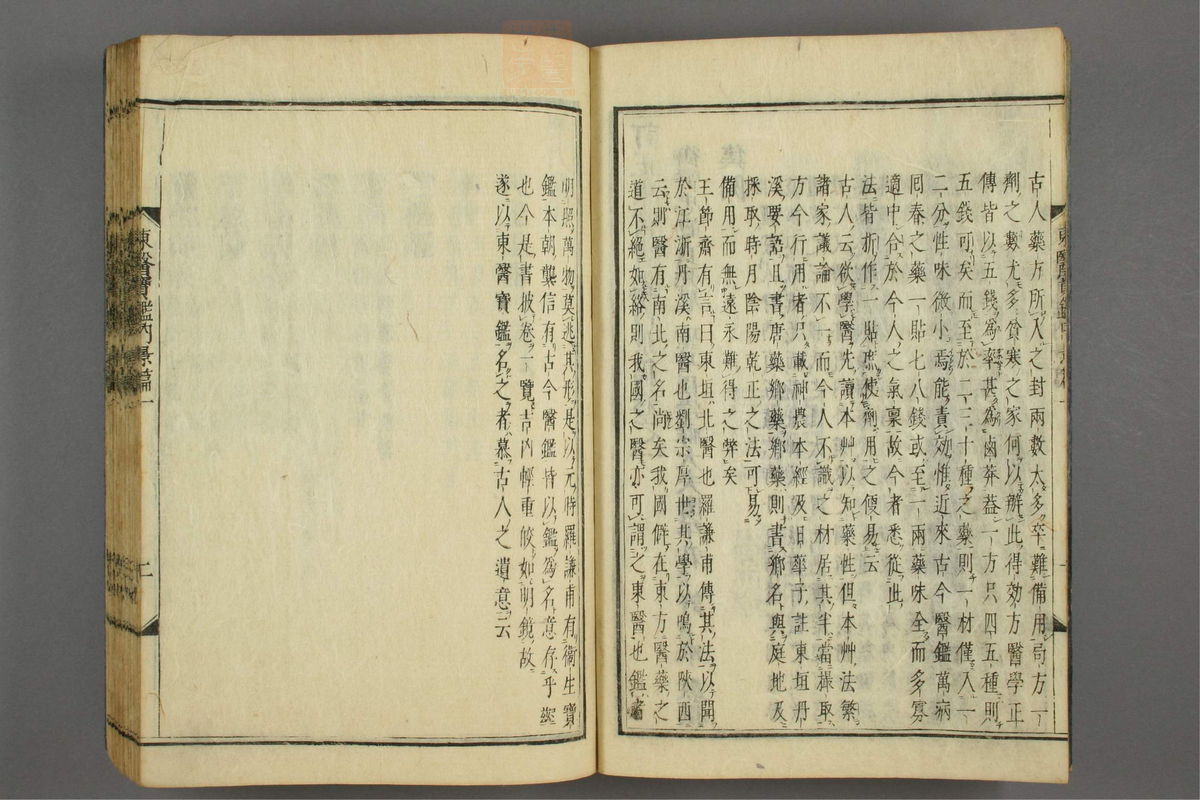 古人藥方所入之封兩數太多卒難備用局方一
劑之數尤多貧寒之家何以辦此得効方醫學正
傳皆以五錢為率甚為鹵莽葢一方只四五種則
五錢可矣而至於二三十種之藥則一材僅入一
二分性味微小焉能責効惟近來古今醫鑑萬病
囘春之藥一貼七八錢或至一兩藥味全而多寡
適中合於今人之氣稟故今者悉從此
法皆折作一貼庶使劑用之便易云
古人云欲學醫先讀本艸以知藥性但本艸法繁
諸家議論不一而今人不識之材居其半當撮取
方今行用者只載神農本經及日華子註東垣丹
溪要語且書唐藥鄉藥鄉藥則書鄉名與產地及
採取時月陰陽乾正之法可易
備用而無遠求難得之弊矣
王節齋有言曰東垣北醫也羅謙甫傳其法以聞
於江浙丹溪南醫也劉宗厚世其學以鳴於陝西
云則醫有南北之名尚矣我國僻在東方醫藥之
道不絕如線則我國之醫亦可謂之東醫也鑑者
明照萬物莫逃其形是以元時羅謙甫有衞生寶
鑑本朝龔信有古今醫鑑皆以鑑為名意存乎
也今是書披卷一覽吉凶輕重皎如明鏡故
遂以東醫寶鑑名之者慕古人之遺意云
東醫寶鑑內景篇一
二